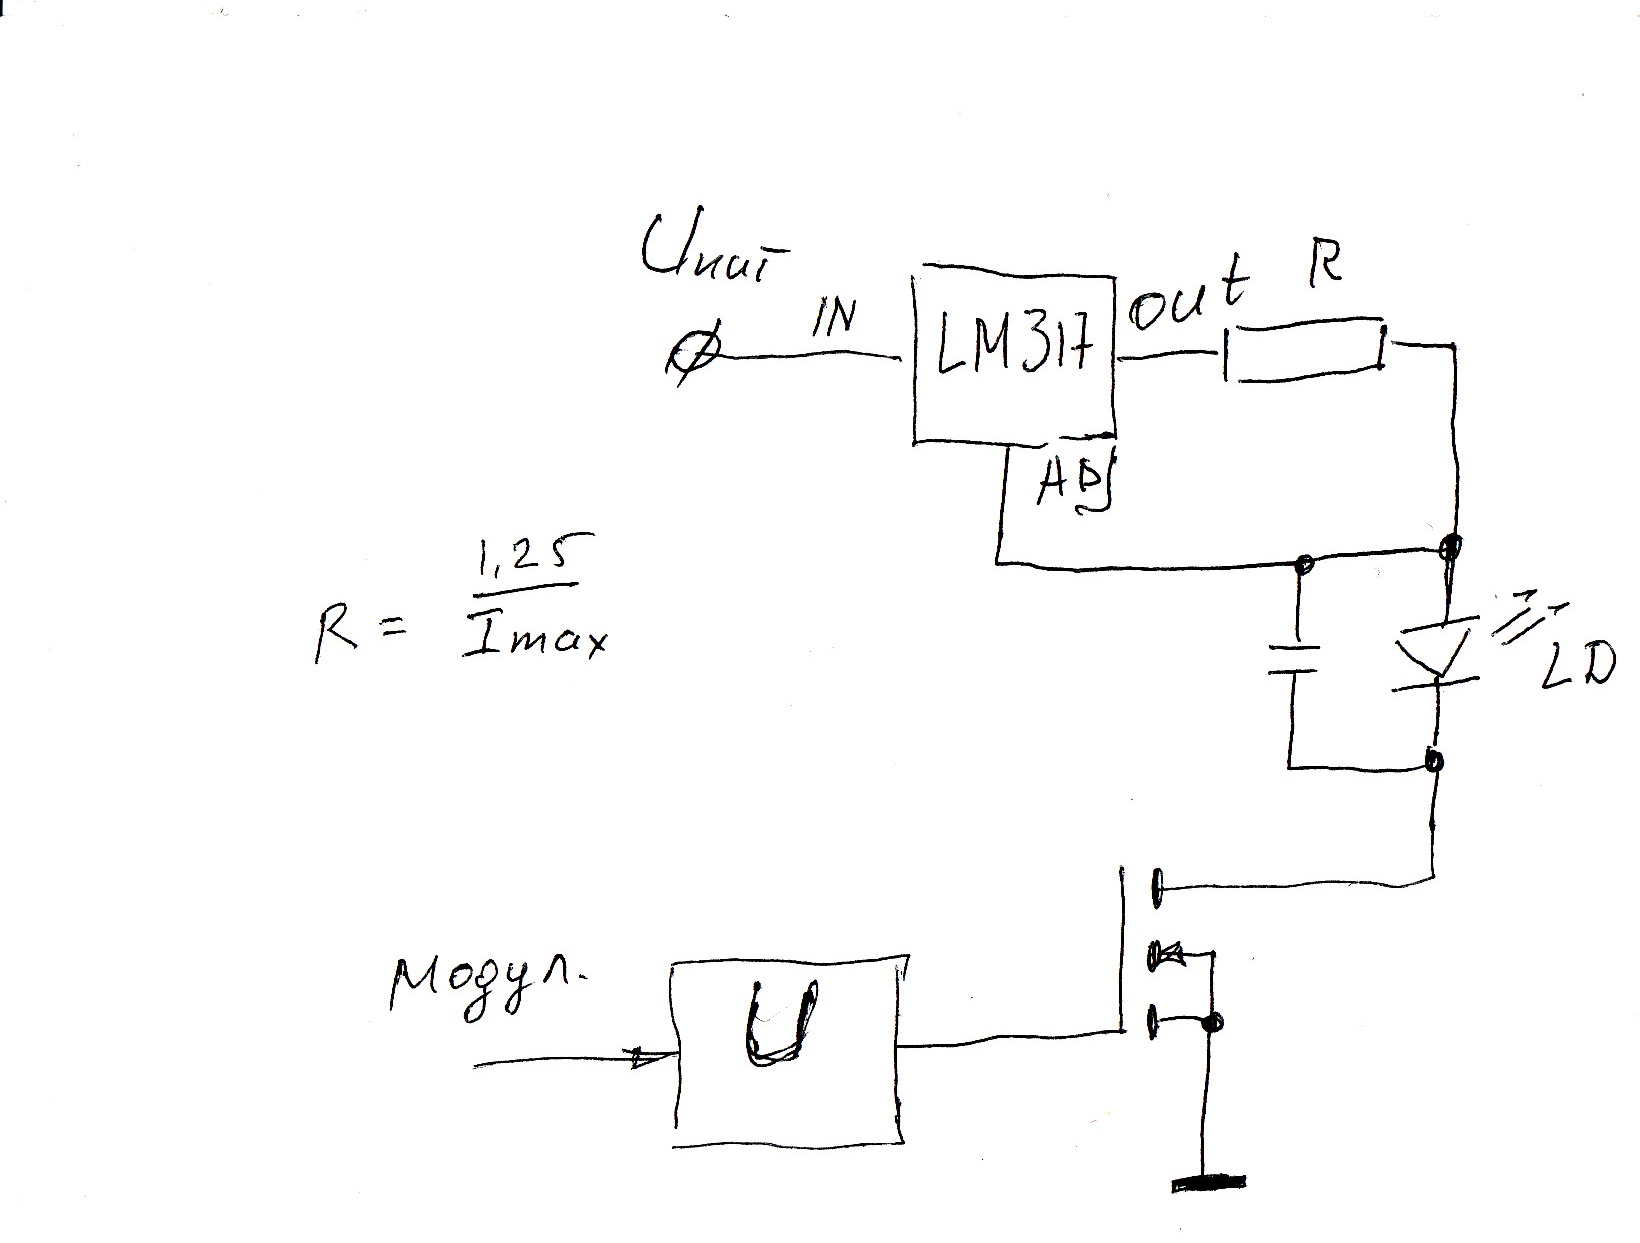 Uпит
IN
LM317
out
R
ADJ
R = 1,25 / Imax
LD
Модул.
U